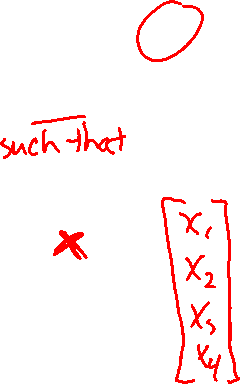 such that
x
x₁
x₂
x₃
x₄